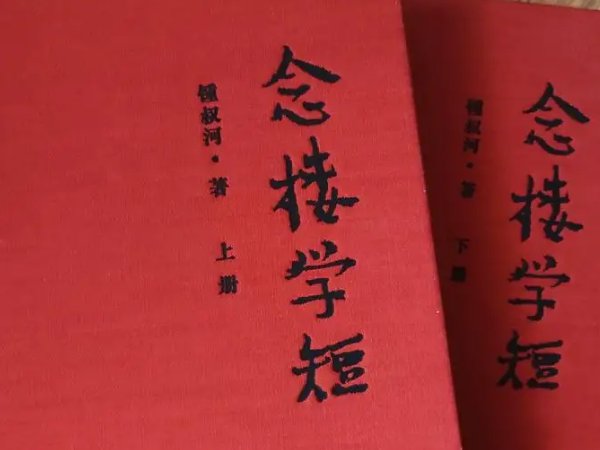 念楼学短
锺叔河·著 上册
念楼学短
锺叔河·著 下册